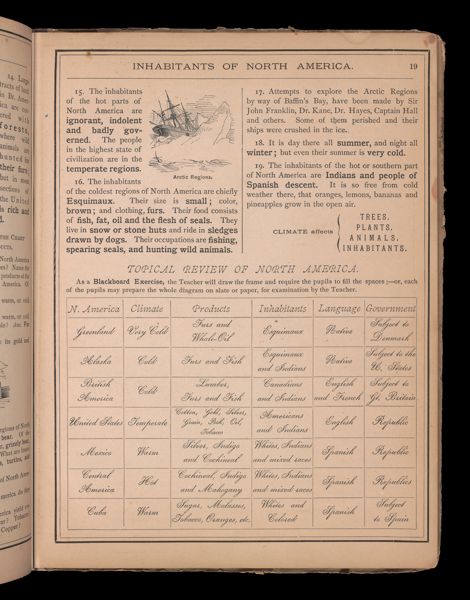 INHABITANTS OF NORTH AMERICA.
19
15. The inhabitants
of the hot parts of
North America are
ignorant, indolent
and badly gov-
erned. The people
in the highest state of
civilization are in the
temperate regions.
Arctic Regions.
16. The inhabitants
of the coldest regions of North America are chiefly
Esquimaux. Their size is small; color,
brown; and clothing, furs. Their food consists
of fish, fat, oil and the flesh of seals. They
live in snow or stone huts and ride in sledges
drawn by dogs. Their occupations are fishing,
spearing seals, and hunting wild animals.
17. Attempts to explore the Arctic Regions
by way of Baffin's Bay, have been made by Sir
John Franklin, Dr. Kane, Dr. Hayes, Captain Hall
and others. Some of them perished and their
ships were crushed in the ice.
18. It is day there all summer, and night all
winter; but even their summer is very cold.
19. The inhabitants of the hot or southern part
of North America are Indians and people of
Spanish descent. It is so free from cold
weather there, that oranges, lemons, bananas and
pineapples grow in the open air.
CLIMATE affects
TREES,
PLANTS,
ANIMALS,
INHABITANTS.
TOPICAL REVIEW OF NORTH AMERICA.
As a Blackboard Exercise, the Teacher will draw the frame and require the pupils to fill the spaces;—or, each
of the pupils may prepare the whole diagram on slate or paper, for examination by the Teacher.
N. America Climate Products Inhabitants Language Government
Greenland Very Cold Furs and Whale-Oil Esquimaux Native Subject to Denmark
Alaska Cold Furs and Fish Esquimaux and Indians Native Subject to the U. States
British America Cold Lumber, Furs and Fish Canadians and Indians English and French Subject to Gt. Britain
United States Temperate Cotton, Gold, Silver, Grain, Pork, Oil, Tobacco Americans and Indians English Republic
Mexico Warm Silver, Indigo and Cochineal Whites, Indians and mixed races Spanish Republic
Central America Hot Cochineal, Indigo and Mahogany Whites, Indians and mixed races Spanish Republics
Cuba Warm Sugar, Molasses, Tobacco, Oranges, etc. Whites and Colored Spanish Subject to Spain